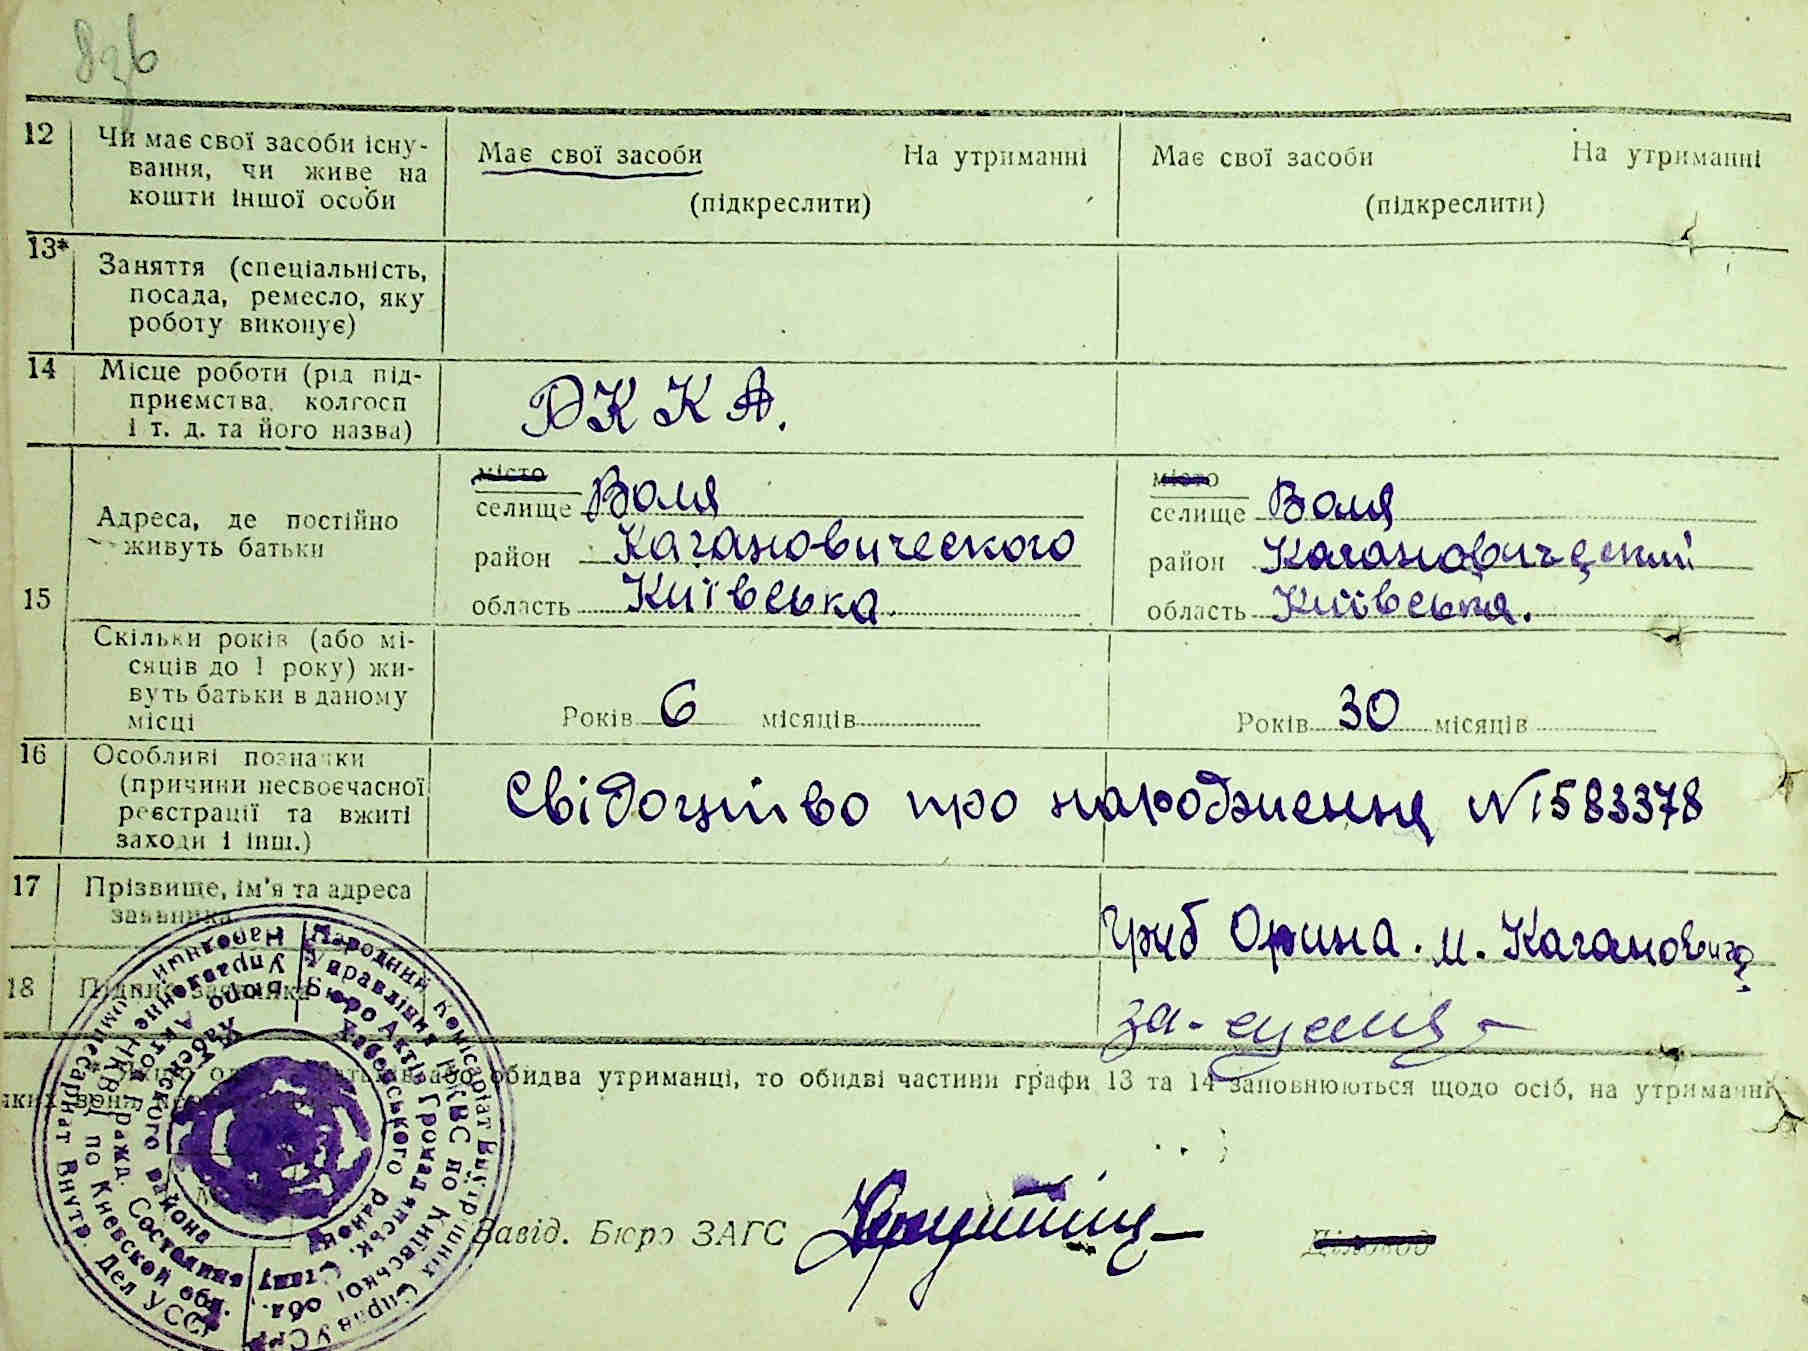 12 Чи має свої засоби існу-
вання, чи живе на
кошти іншої особи
Має свої засоби На утриманні
(підкреслити)
Має свої засоби На утриманні
(підкреслити)
13* Заняття (спеціальність,
посада, ремесло, яку
роботу виконує)
14 Місце роботи (рід під-
приємства, колгосп
і т. д. та його назва)
РККА.
15 Адреса, де постійно
живуть батьки
місто
селище Воля
район Кагановического
область Київська.
місто
селище Воля
район Кагановический
область Київська.
Скільки років (або мі-
сяців до 1 року) жи-
вуть батьки в даному
місці
Років 6 місяців
Років 30 місяців
16 Особливі позначки
(причини несвоєчасної
реєстрації та вжиті
заходи і інш.)
Свідоцтво про народження № 1583378
17 Прізвище, ім'я та адреса
заявника
Гриб Орина. м. Кагановича
18 Підпис заявника
обидва утриманці, то обидві частини графи 13 та 14 заповнюються щодо осіб, на утриманні
яких вони
Завід. Бюро ЗАГС
Діловод
Народний Комісаріат Внутрішніх Справ УСРР
Управління НКВС по Київській обл.
Бюро Актів Громадянськ. Стану
Хабенського району
Народный Комиссариат Внутр. Дел УССР
Управление НКВД по Киевской обл.
Бюро Актов Гражд. Состояния
Хабенского района